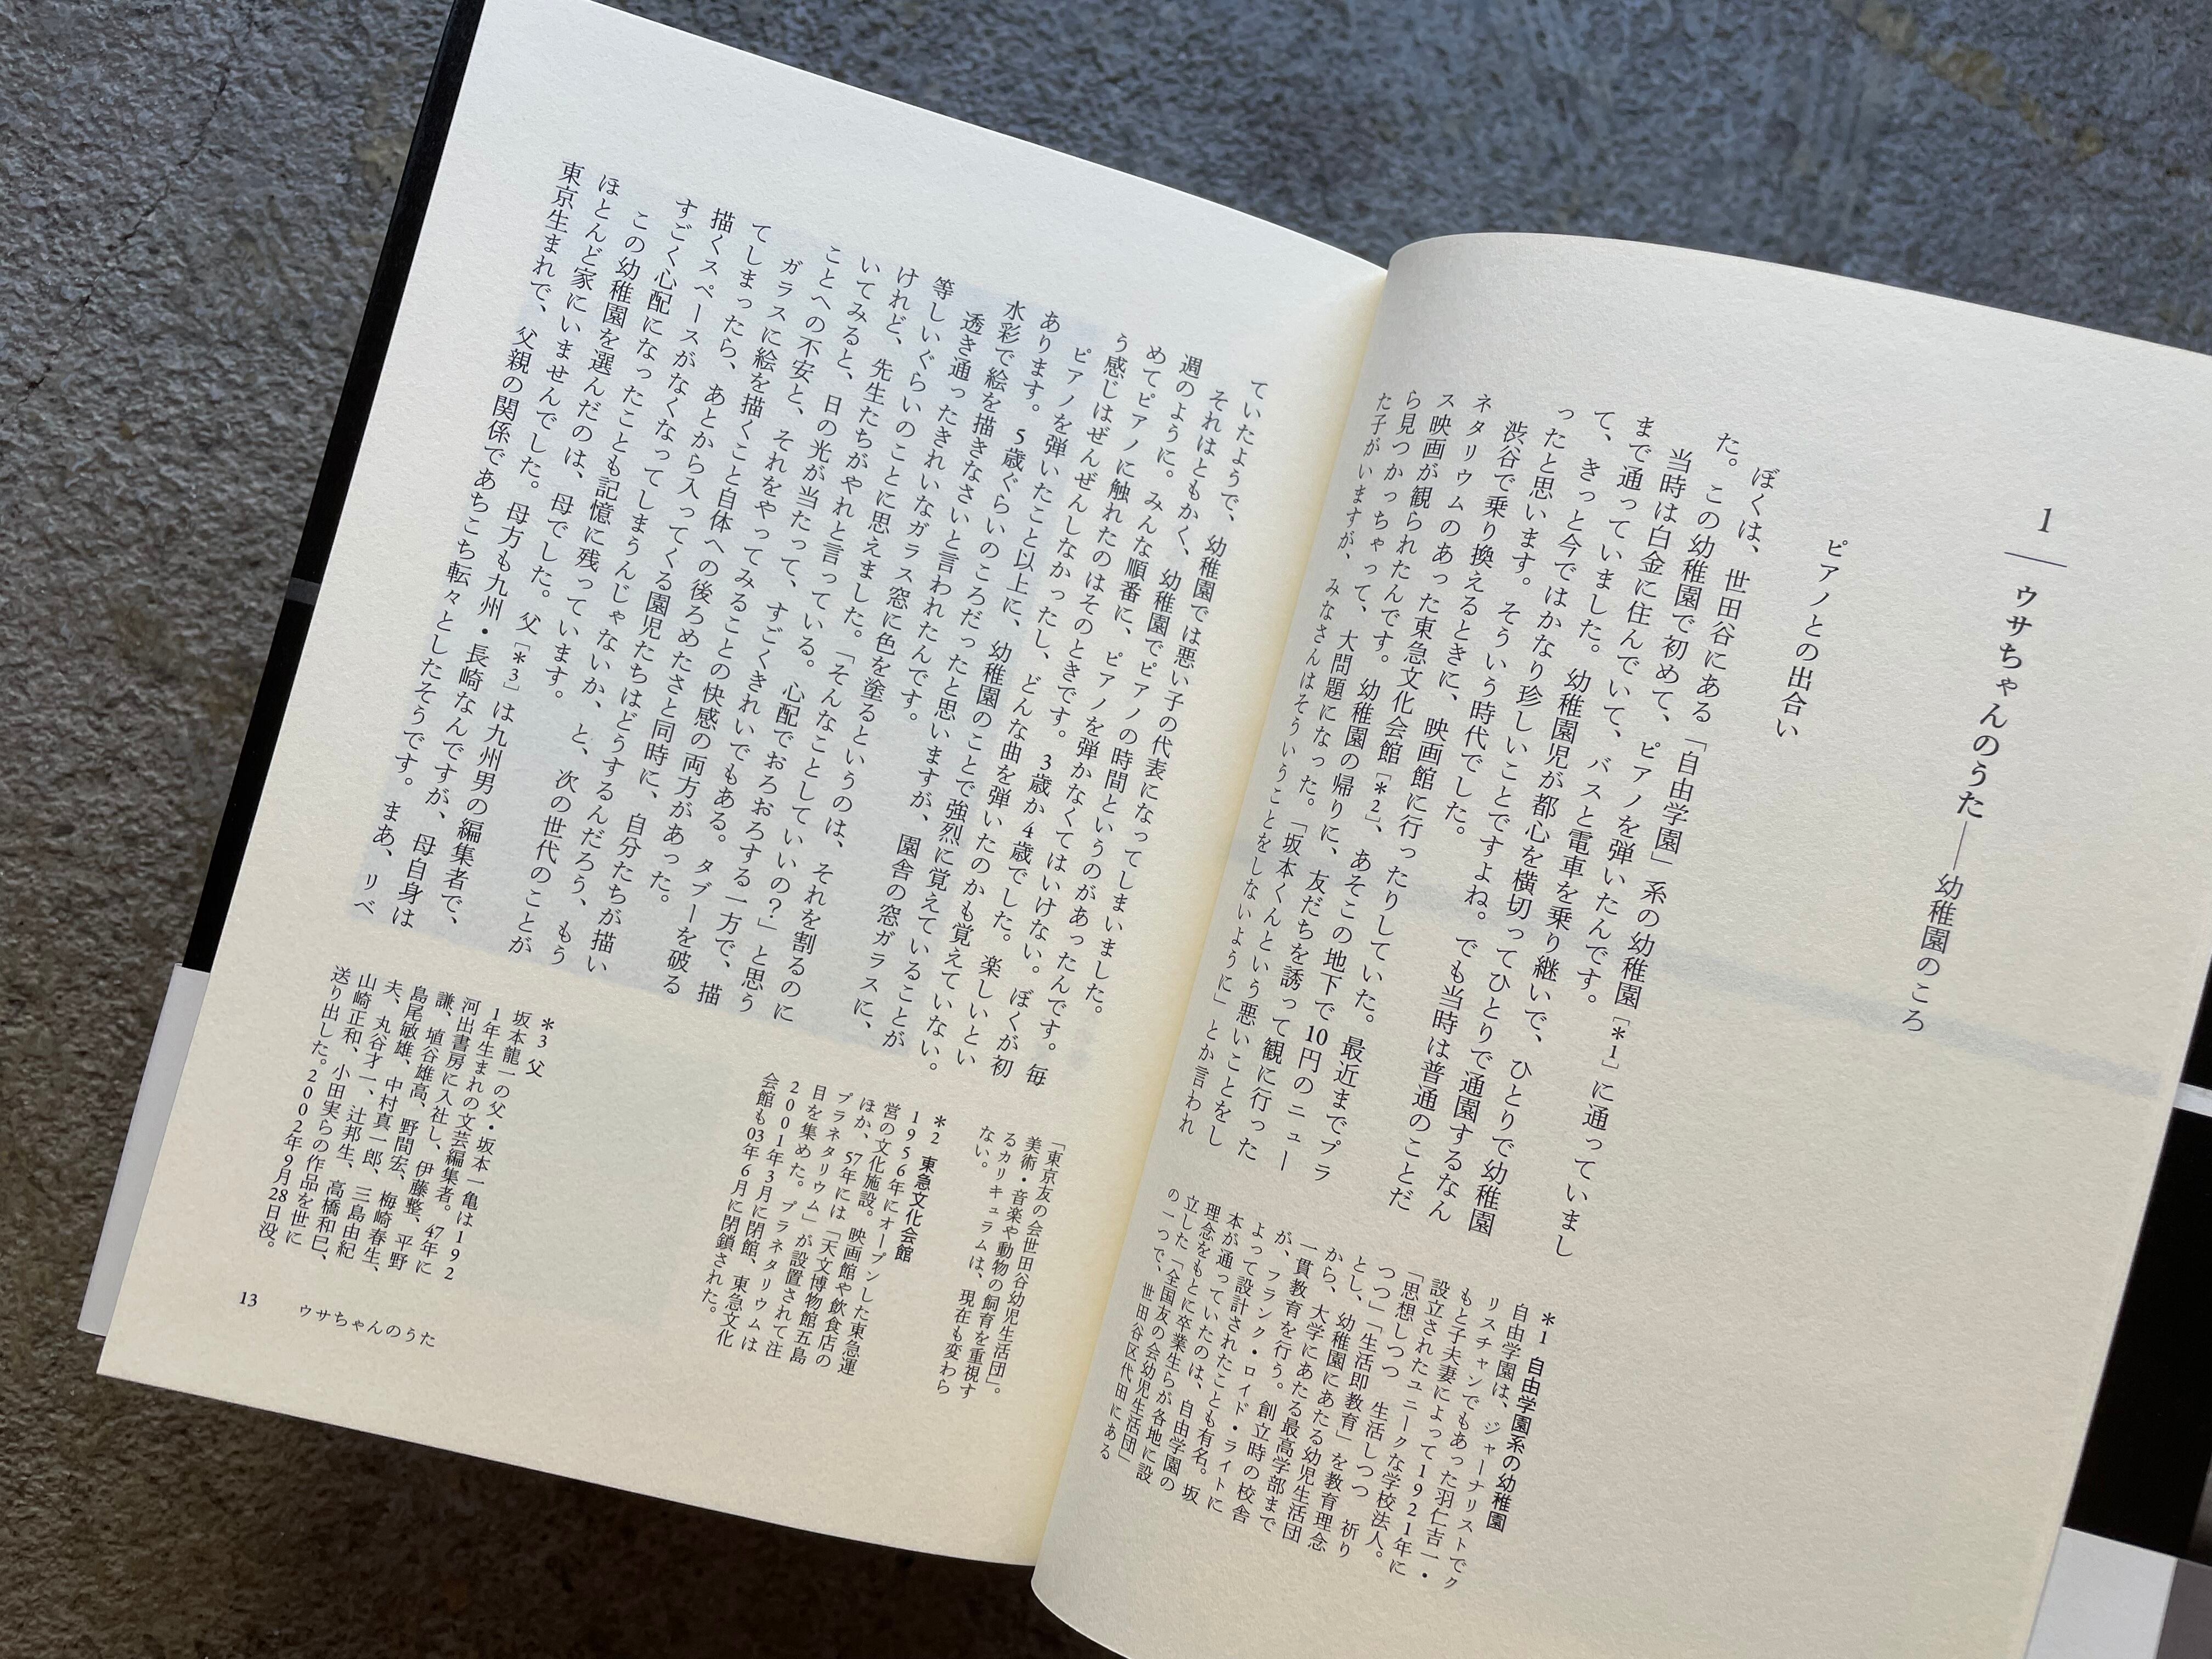 1
ウサちゃんのうた――幼稚園のころ
ピアノとの出合い
ぼくは、世田谷にある「自由学園」系の幼稚園[＊1]に通っていまし
た。この幼稚園で初めて、ピアノを弾いたんです。
当時は白金に住んでいて、バスと電車を乗り継いで、ひとりで幼稚園
まで通っていました。幼稚園児が都心を横切ってひとりで通園するなん
て、きっと今ではかなり珍しいことですよね。でも当時は普通のことだ
ったと思います。そういう時代でした。
渋谷で乗り換えるときに、映画館に行ったりしていた。最近までプラ
ネタリウムのあった東急文化会館[＊2]、あそこの地下で10円のニュー
ス映画が観られたんです。幼稚園の帰りに、友だちを誘って観に行った
ら見つかっちゃって、大問題になった。「坂本くんという悪いことをし
た子がいますが、みなさんはそういうことをしないように」とか言われ
＊1 自由学園系の幼稚園
自由学園は、ジャーナリストでク
リスチャンでもあった羽仁吉一・
もと子夫妻によって1921年に
設立されたユニークな学校法人。
「思想しつつ　生活しつつ　祈り
つつ」「生活即教育」を教育理念
とし、幼稚園にあたる幼児生活団
から、大学にあたる最高学部まで
一貫教育を行う。創立時の校舎
が、フランク・ロイド・ライトに
よって設計されたことも有名。坂
本が通っていたのは、自由学園の
理念をもとに卒業生らが各地に設
立した「全国友の会幼児生活団」
の一つで、世田谷区代田にある
ていたようで、幼稚園では悪い子の代表になってしまいました。
それはともかく、幼稚園でピアノの時間というのがあったんです。毎
週のように。みんな順番に、ピアノを弾かなくてはいけない。ぼくが初
めてピアノに触れたのはそのときです。3歳か4歳でした。楽しいとい
う感じはぜんぜんしなかったし、どんな曲を弾いたのかも覚えていない。
ピアノを弾いたこと以上に、幼稚園のことで強烈に覚えていることが
あります。5歳ぐらいのころだったと思いますが、園舎の窓ガラスに、
水彩で絵を描きなさいと言われたんです。
透き通ったきれいなガラス窓に色を塗るというのは、それを割るのに
等しいぐらいのことに思えました。「そんなことしていいの？」と思う
けれど、先生たちがやれと言っている。心配でおろおろする一方で、描
いてみると、日の光が当たって、すごくきれいでもある。タブーを破る
ことへの不安と、それをやってみることの快感の両方があった。
ガラスに絵を描くこと自体への後ろめたさと同時に、自分たちが描い
てしまったら、あとから入ってくる園児たちはどうするんだろう、もう
描くスペースがなくなってしまうんじゃないか、と、次の世代のことが
すごく心配になったことも記憶に残っています。
この幼稚園を選んだのは、母でした。父[＊3]は九州男の編集者で、
ほとんど家にいませんでした。母方も九州・長崎なんですが、母自身は
東京生まれで、父親の関係であちこち転々としたそうです。まあ、リベ
「東京友の会世田谷幼児生活団」。
美術・音楽や動物の飼育を重視す
るカリキュラムは、現在も変わら
ない。
＊2 東急文化会館
1956年にオープンした東急運
営の文化施設。映画館や飲食店の
ほか、57年には「天文博物館五島
プラネタリウム」が設置されて注
目を集めた。プラネタリウムは
2001年3月に閉館、東急文化
会館も03年6月に閉鎖された。
＊3 父
坂本龍一の父・坂本一亀は192
1年生まれの文芸編集者。47年に
河出書房に入社し、伊藤整、平野
謙、埴谷雄高、野間宏、梅崎春生、
島尾敏雄、中村真一郎、三島由紀
夫、丸谷才一、辻邦生、高橋和巳、
山崎正和、小田実らの作品を世に
送り出した。2002年9月28日没。
13 ウサちゃんのうた